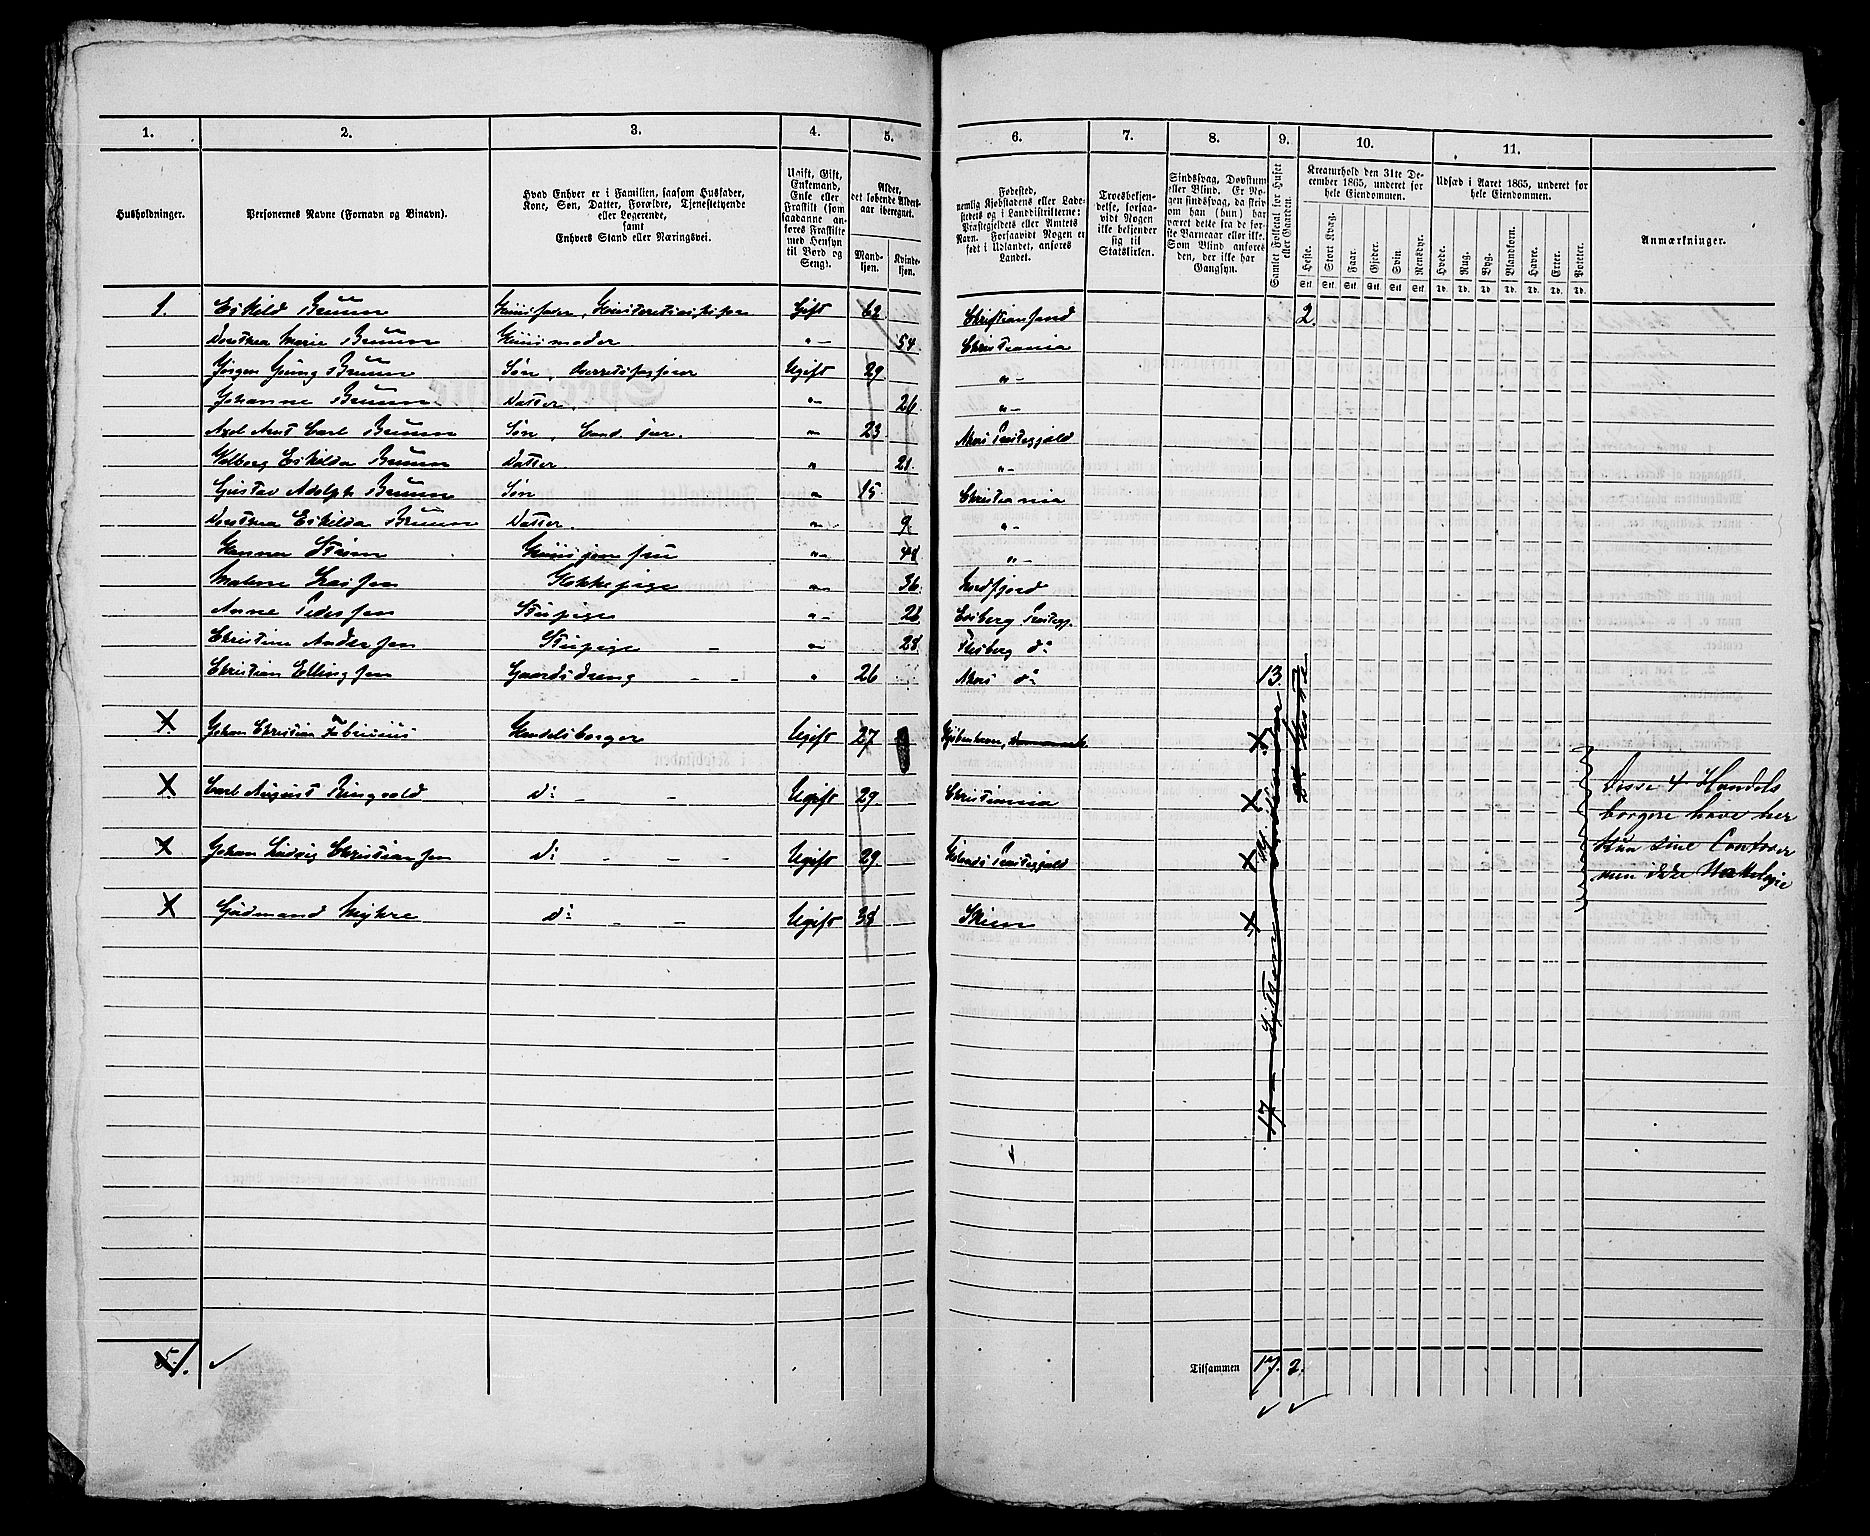 1.
2.
3.
4.
5.
6.
7.
8.
9.
10.
11.
Husholdninger.
Personernes Navne (Fornavn og Binavn).
Hvad Enhver er i Familien, saasom Husfader,
Kone, Søn, Datter, Forældre, Tjenestetyende
eller Logerende,
samt
Enhvers Stand eller Næringsvei.
Ugift, Gift,
Enkemand,
Enke eller
Fraskilt (som
saadanne an-
føres Fraskilte
med Hensyn
til Bord og
Seng).
Alder,
det løbende Alders-
aar iberegnet.
Mand-
kjøn.
Kvinde-
kjøn.
Fødested,
nemlig Kjøbstadens eller Lade-
stedets og i Landdistrikterne:
Præstegjeldets eller Amtets
Navn. Forsaavidt Nogen er
født i Udlandet, anføres
Landet.
Troesbekjen-
delse, forsaa-
vidt Nogen
ikke bekjender
sig til
Statskirken.
Sindssvag, Døvstum
eller Blind. Er No-
gen sindssvag, da skriv
om han (hun) har
været dette fra de før-
ste Barneaar eller ikke.
Som Blind anføres
den, der ikke har
Gangsyn.
Samlet Folketal for Huset
eller Gaarden.
Kreaturhold den 31te De-
cember 1865, underet for
hele Eiendommen.
Heste. Stort Kvæg. Faar. Gjeder. Svin. Rensdyr.
Stk. Stk. Stk. Stk. Stk. Stk.
Udsæd i Aaret 1865, underet for
hele Eiendommen.
Hvede. Rug. Byg. Blandkorn. Havre. Erter. Poteter.
Td. Td. Td. Td. Td. Td. Td.
Anmærkninger.
1. Eskild Bruun Huusfader, Gift 62 Christiansand 2.
Dorothea Marie Bruun Huusmoder "- 54 Christiania
Jørgen Bruun Søn, Ugift 29 "-
Johanne Bruun Datter. "- 26 "-
Axel Arnt Carl Bruun Søn, Cand. jur. " 23 Akers Præstegjæld
Valborg Eskilda Bruun Datter " 21. "-
Gustav Adolph Bruun Søn " 15 Christiania
Dorothea Eskilda Bruun Datter. "- 9. "-
Hanna Strøm "- 48 "-
Malene Larssen Kokkepige "- 36 Nordfjord
Anne Pedersen Stuepige "- 26 Eidsberg Præstegj.
Christine Andersen Stuepige - "- 28 Flesberg d°
Christian Ellingsen Gaardsdreng - - " 26 Akers d° 13.
X Johan Christian Fabricius Handelsborger Ugift 27 Kjøbenhavn, Danmark X
X Carl August Ringvold d: - - Ugift 29 Christiania X
X Johan Ludvig Christiansen d: - - - Ugift 29 Præstegjæld X
X Gudmand Myhre d: - - Ugift 38 Skien X
Disse 4 Handels
borgere have her
kun sine Contorer
men ikke
17 -
Tilsammen 17. 2.